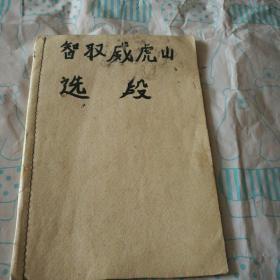 智取威虎山
选段